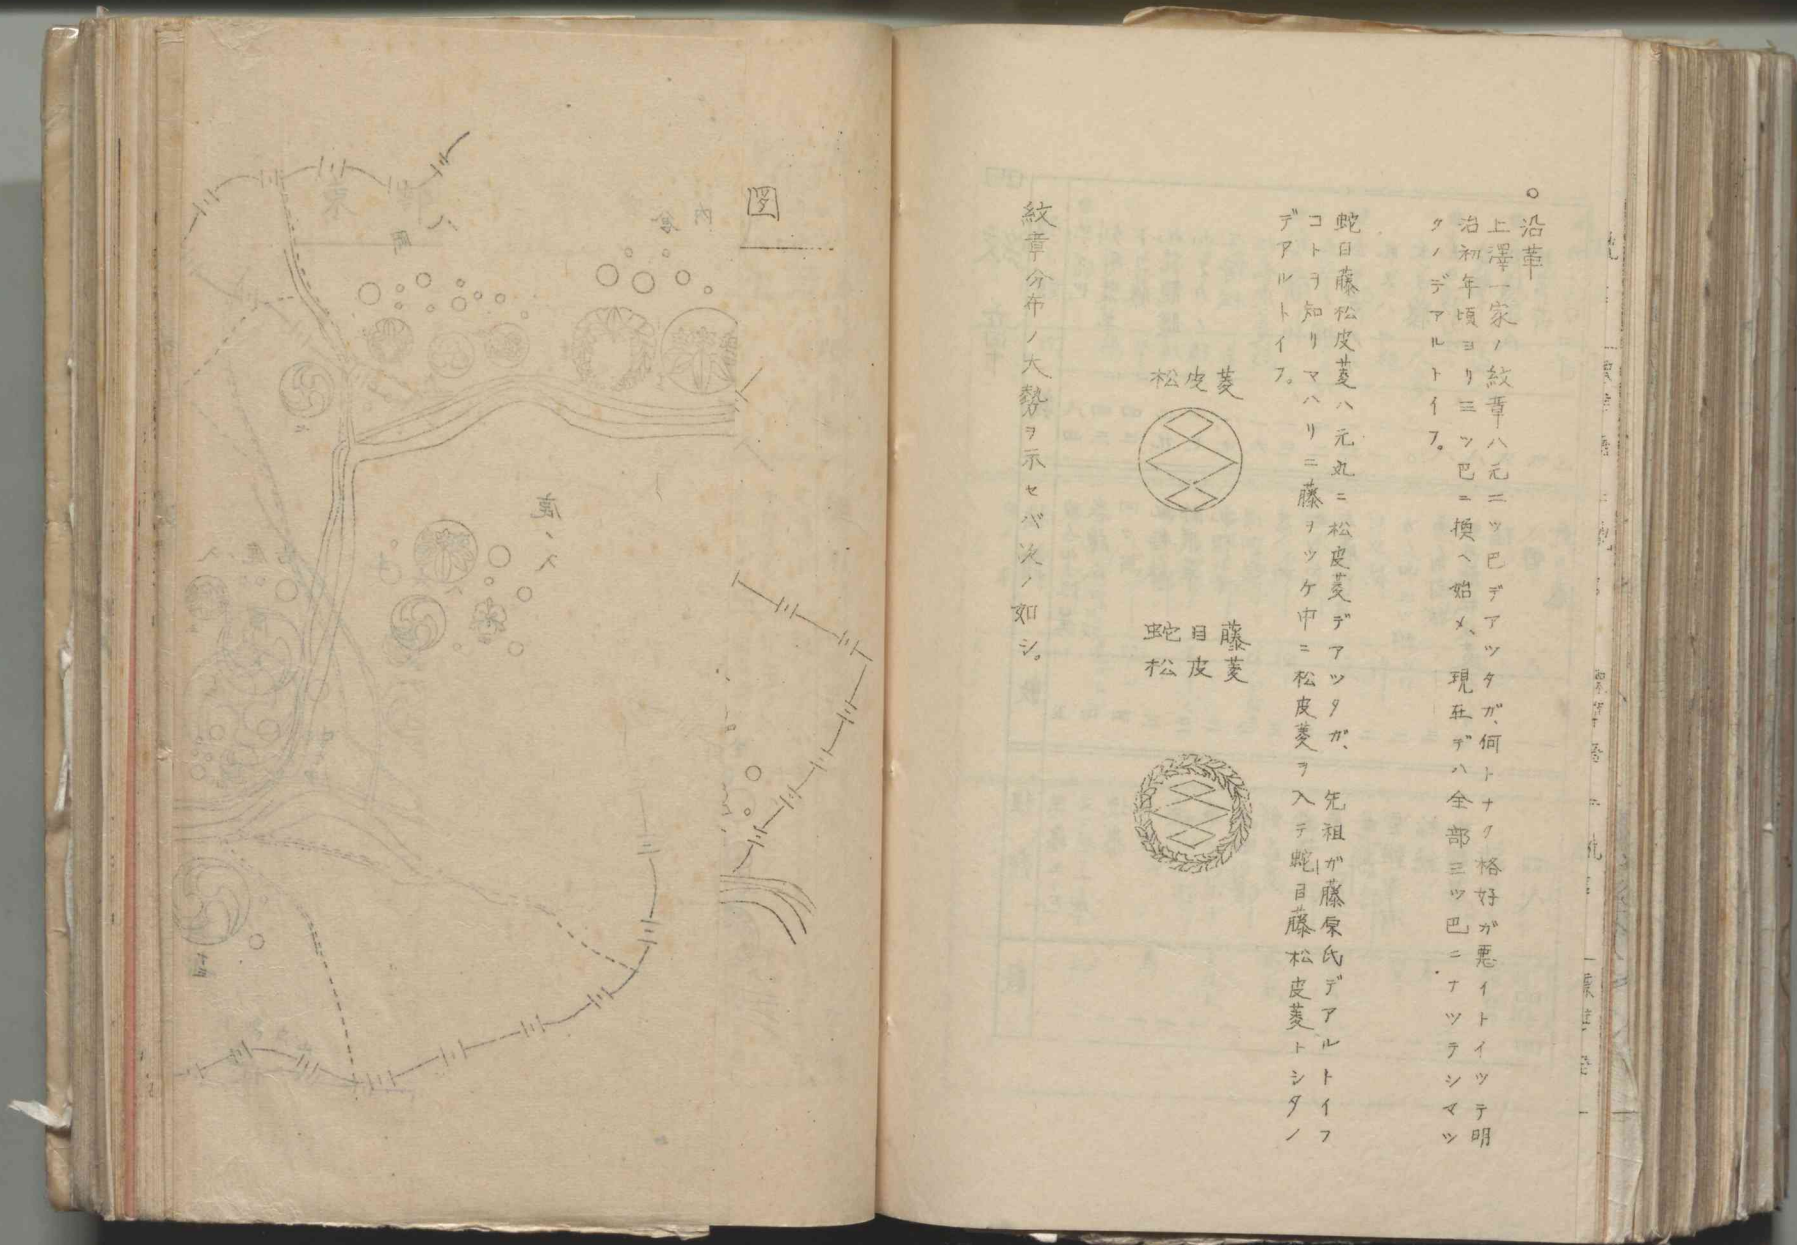 ○沿革
上澤一家ノ紋章ハ元二ツ巴デアツタガ、何トナク格好ガ悪イトイツテ明
治初年頃ヨリ三ツ巴ニ換ヘ始メ、現在デハ全部三ツ巴ニナツテシマツ
タノデアルトイフ。
蛇目藤松皮菱ハ元丸ニ松皮菱デアツタガ、先祖ガ藤原氏デアルトイフ
コトヲ知リマハリニ藤ヲツケ中ニ松皮菱ヲ入テ蛇目藤松皮菱トシタノ
デアルトイフ。
松皮菱
蛇目藤
松皮菱
紋章分布ノ大勢ヲ示セバ次ノ如シ。
図
鹿ノ入